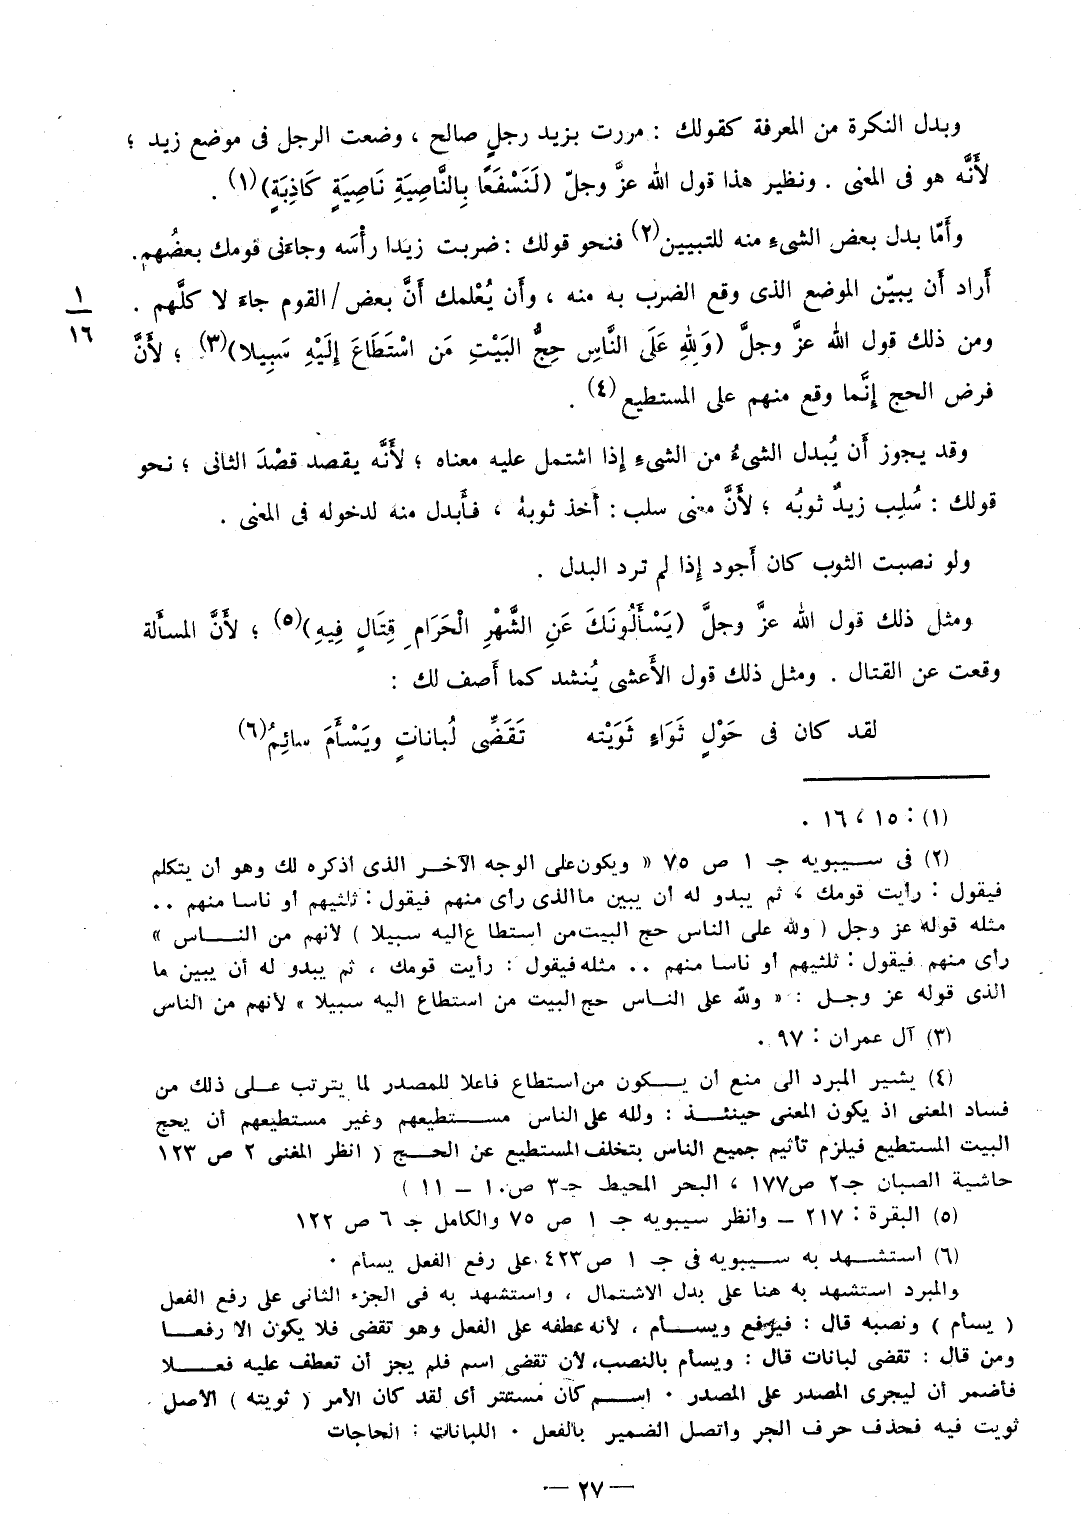 وبدل النكرة من المعرفة كقولك : مررت بزيد رجلٍ صالح ، وضعت الرجل فى موضع زيد ؛
لأَنَّه هو فى المعنى . ونظير هذا قول الله عزَّ وجلّ (لَنَسْفَعًا بِالنَّاصِيَةِ نَاصِيَةٍ كَاذِبَةٍ)(١) .
وأَمّا بدل بعض الشىءِ منه للتبيين(٢) فنحو قولك : ضربت زيدا رأْسَه وجاءَنى قومك بعضُهم.
أَراد أَن يبيّن الموضع الذى وقع الضرب به منه ، وأَن يُعْلمك أَنَّ بعض / القوم جاءَ لا كلَّهم .
١
١٦
ومن ذلك قول الله عزَّ وجلَّ (وَلِلهِ عَلَى النَّاسِ حِجُّ البَيْتِ مَن اسْتَطَاعَ إِلَيْهِ سَبِيلا)(٣) ؛ لأَنَّ
فرض الحج إِنَّما وقع منهم على المستطيع (٤) .
وقد يجوز أَن يُبدل الشىءُ من الشىءِ إِذا اشتمل عليه معناه ؛ لأَنَّه يقصد قصْدَ الثانى ؛ نحو
قولك : سُلِب زيدٌ ثوبُه ؛ لأَنَّ معنى سلب : أَخذ ثوبهُ ، فأَبدل منه لدخوله فى المعنى .
ولو نصبت الثوب كان أَجود إِذا لم ترد البدل .
ومثل ذلك قول الله عزَّ وجلَّ (يَسْأَلُونَكَ عَنِ الشَّهْرِ الْحَرَامِ قِتَالٍ فِيهِ)(٥) ؛ لأَنَّ المسأَلة
وقعت عن القتال . ومثل ذلك قول الأَعشى يُنشد كما أَصف لك :
لقد كان فى حَوْلٍ ثَوَاءٍ ثَوَيْته تَقَضِّى لُبانَاتٍ ويَسْأَمَ سائِمُ(٦)
(١) : ١٥ ، ١٦ .
(٢) فى سيبويه جـ ١ ص ٧٥ « ويكون على الوجه الآخر الذى اذكره لك وهو أن يتكلم
فيقول : رأيت قومك ، ثم يبدو له أن يبين ما الذى رأى منهم فيقول : ثلثيهم أو ناسا منهم ..
مثله قوله عز وجل ( ولله على الناس حج البيت من استطا ع اليه سبيلا ) لأنهم من الناس »
رأى منهم فيقول : ثلثيهم أو ناسا منهم .. مثله فيقول : رأيت قومك ، ثم يبدو له أن يبين ما
الذى قوله عز وجل : « ولله على الناس حج البيت من استطاع اليه سبيلا » لأنهم من الناس
(٣) آل عمران : ٩٧ .
(٤) يشير المبرد الى منع أن يكون من استطاع فاعلا للمصدر لما يترتب على ذلك من
فساد المعنى اذ يكون المعنى حينئذ : ولله على الناس مستطيعهم وغير مستطيعهم أن يحج
البيت المستطيع فيلزم تأثيم جميع الناس بتخلف المستطيع عن الحج ( انظر المغنى ٢ ص ١٢٣
حاشية الصبان جـ٢ ص١٧٧ ، البحر المحيط جـ٣ ص١٠ – ١١ )
(٥) البقرة : ٢١٧ – وانظر سيبويه جـ ١ ص ٧٥ والكامل جـ ٦ ص ١٢٢
(٦) استشهد به سيبويه فى جـ ١ ص ٤٢٣ على رفع الفعل يسأم .
والمبرد استشهد به هنا على بدل الاشتمال ، واستشهد به فى الجزء الثانى على رفع الفعل
( يسأم ) ونصبه قال : فيرفع ويسأم ، لأنه عطفه على الفعل وهو تقضى فلا يكون الا رفعا
ومن قال : تقضى لبانات قال : ويسأم بالنصب، لأن تقضى اسم فلم يجز أن تعطف عليه فعلا
فأضمر أن ليجرى المصدر على المصدر . اسم كان مستتر أى لقد كان الأمر ( ثويته ) الأصل
ثويت فيه فحذف حرف الجر واتصل الضمير بالفعل . اللبانات : الحاجات
— ٢٧ —